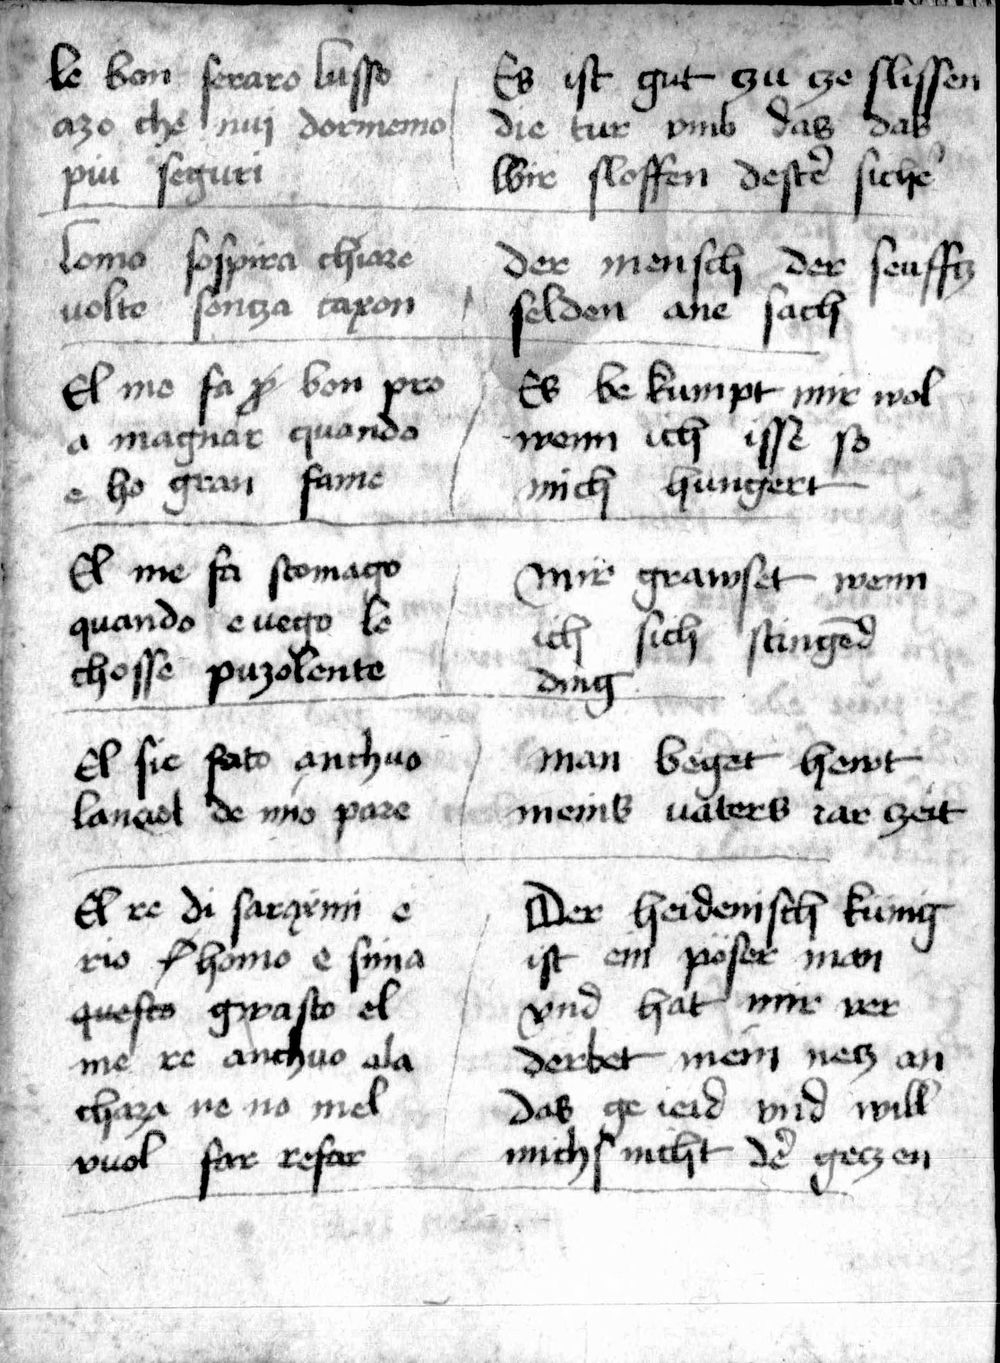 le bon seraro lusso
azo che nui dormemo
piu seguri
Es ist gut czu cze slissen
die tur vmb das das
Wir sloffen dester sicher
Lomo sospira chiare
uolte sencza caxon
der mensch der seufftz
selden ane sach
El me fa bon pro
a magnar quando
e ho gran fame
Es be kumpt mir wol
wenn ich isse so
mich hungert
El me fa stomago
quando e uego le
chosse puzolente
Mir grawset wenn
ich sich stingend
ding
El sie fato anchuo
de mio pare
man beget hewt
meins uaters iar czeit
El re di e
rio homo e sima
questo gwasto el
me re anchuo ala
chaza ne no mel
vuol far refar
Der heidenisch künig
ist ein pöser man
vnd hat mir ver
derbet mein necz an
das ge ieid vnd will
michs nicht der geczen